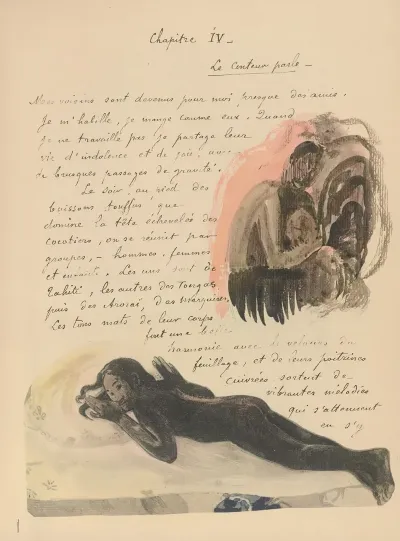 Chapitre IV _
Le Conteur parle _
Mes voisins sont devenus pour moi presque des amis.
Je m'habille, je mange comme eux. Quand
je ne travaille pas je partage leur
vie d'indolence et de joie, avec
de brusques passages de gravité.
Le soir, au pied des
buissons touffus que
domine la tête échevelée des
Cocotiers, on se réunit par
groupes, - hommes, femmes
et enfants. Les uns sont de
Tahiti, les autres des Tongas
puis des Arorai, des Marquises.
Les tons mats de leur corps
font une belle
harmonie avec le velours du
feuillage, et de leurs poitrines
cuivrées sortent de
vibrantes mélodies
qui s'atténuent
en s'y